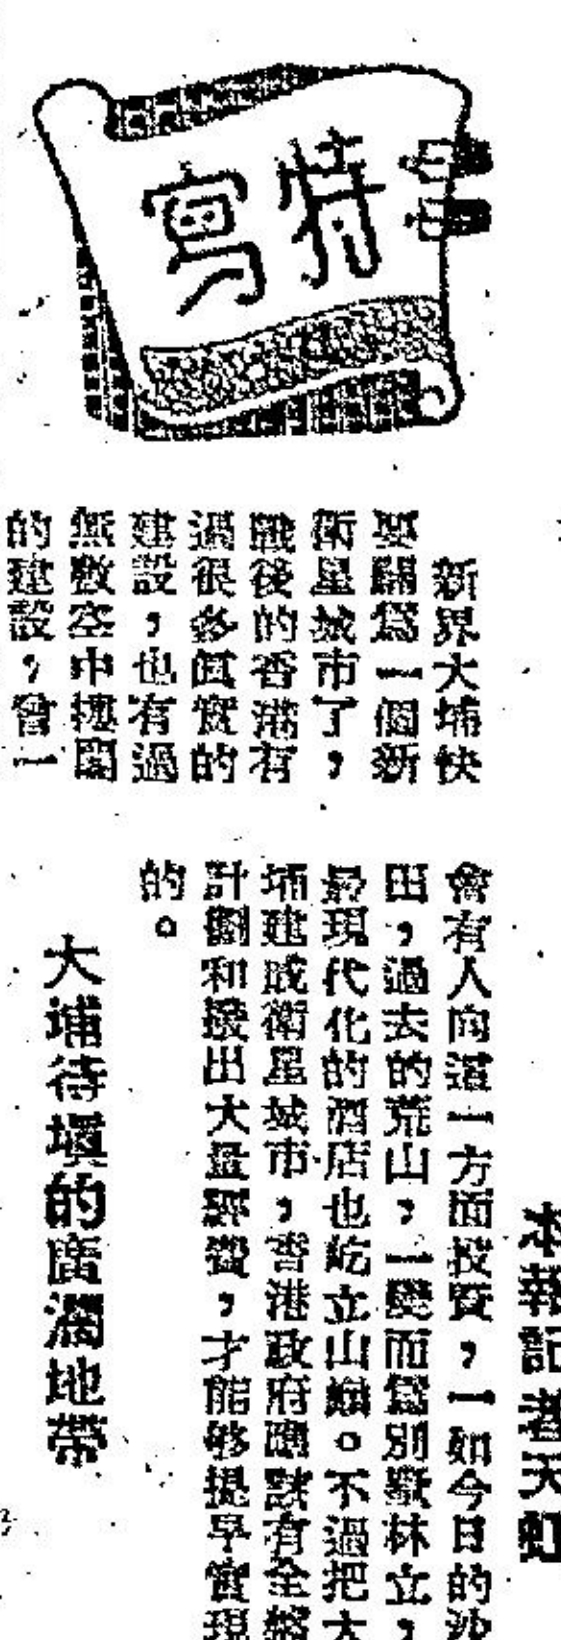 特寫
新界大埔快
要闢爲一個新
衛星城市了，
戰後的香港有
過很多眞實的
建設，也有過
無數空中樓閣
的建設，曾一
本報記者天虹
會有人向這一方面投資，一如今日的沙
田，過去的荒山，一變而爲別墅林立，
最現代化的酒店也屹立山巔。不過把大
埔建成衛星城市，香港政府應該有全盤
計劃和撥出大量經費，才能够提早實現
的。
大埔待塡的廣濶地帶